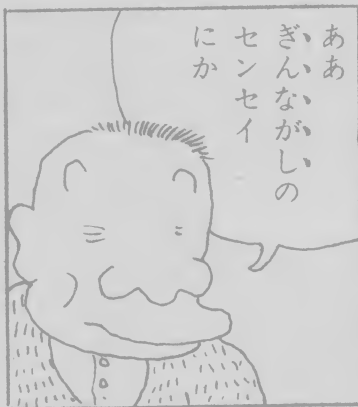 ああ
ぎんながしの
センセイ
にか